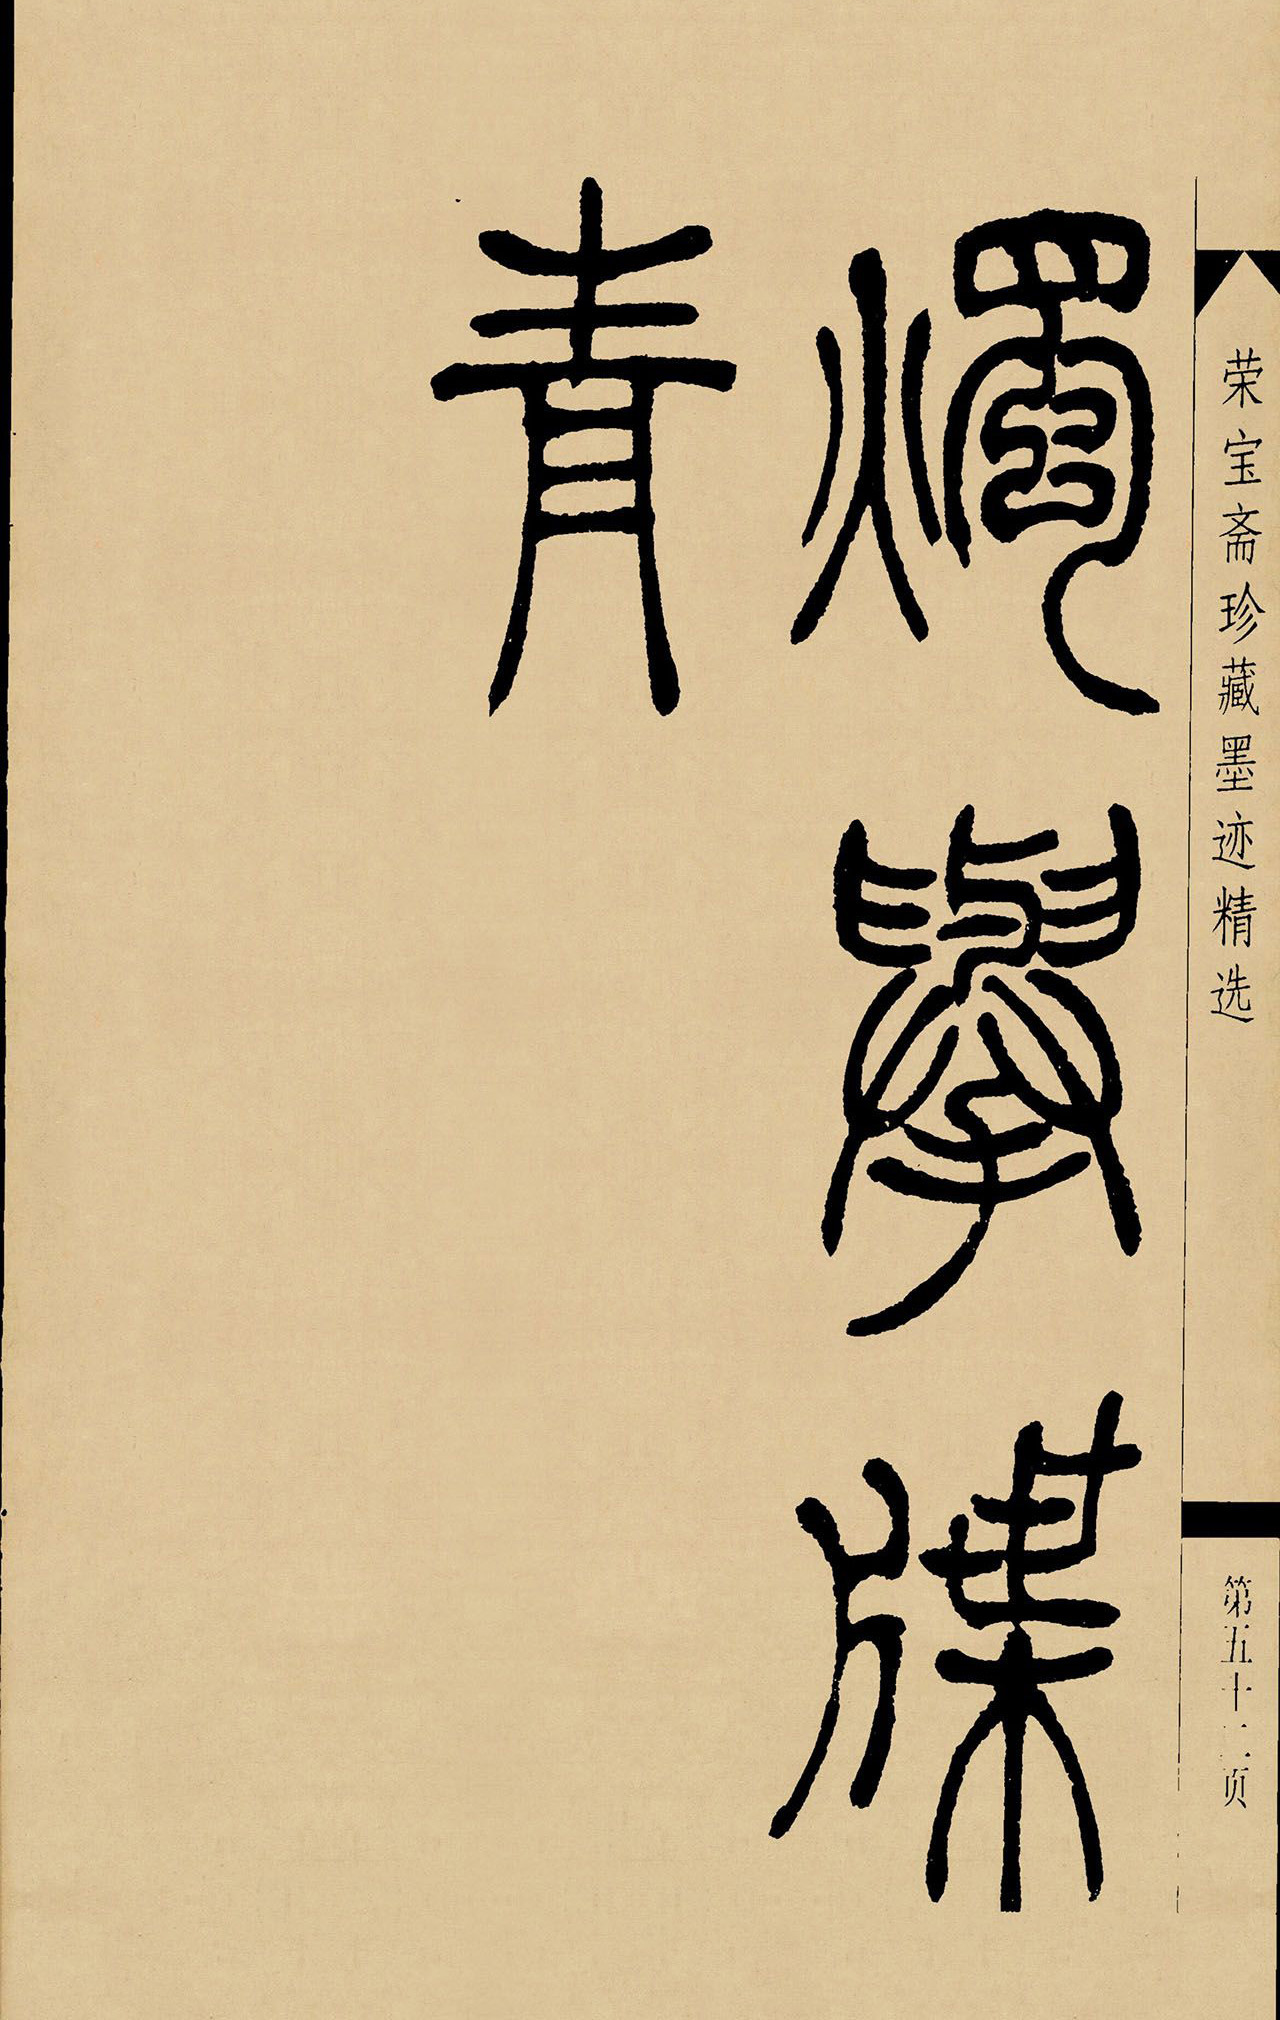 荣宝斋珍藏墨迹精选
第五十二页
燭舉牒
青